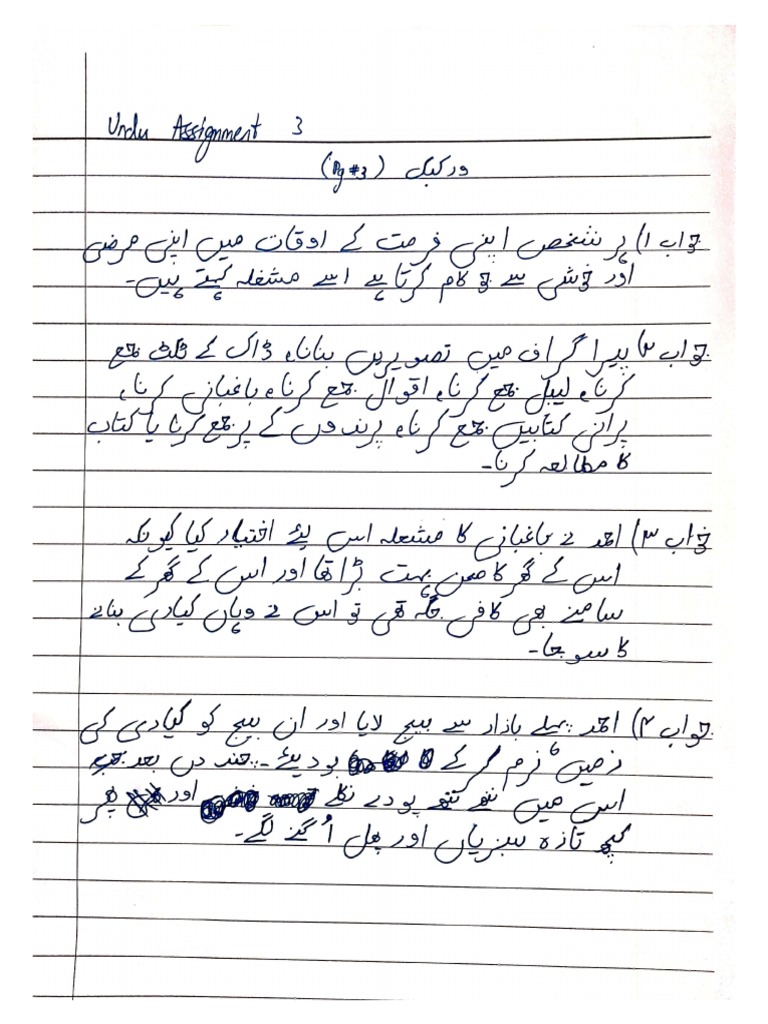 Urdu Assignment 3
ورکبک (Pg #3)
جواب ۱) ہر شخص اپنی فرصت کے اوقات میں اپنی مرضی
اور خوشی سے جو کام کرتا ہے اسے مشغلہ کہتے ہیں۔
جواب ۲) پیراگراف میں تصویریں بنانا، ڈاک کے ٹکٹ جمع
کرنا، لیبل جمع کرنا، اقوال جمع کرنا، باغبانی کرنا،
پرانی کتابیں جمع کرنا، پرندوں کے پر جمع کرنا یا کتاب
کا مطالعہ کرنا۔
جواب ۳) احمد نے باغبانی کا مشغلہ اس لئے اختیار کیا کیونکہ
اس کے گھر کا صحن بہت بڑا تھا اور اس کے گھر کے
سامنے بھی کافی جگہ تھی تو اس نے وہاں کیاری بنانے
کا سوچا۔
جواب ۴) احمد پہلے بازار سے بیج لایا اور ان بیج کو کیاری کی
زمین نرم کر کے بو دیئے۔ چند دن بعد جب
اس میں ننھے ننھے پودے نکلے اور پھر
کچھ تازہ سبزیاں اور پھل اُگنے لگے۔